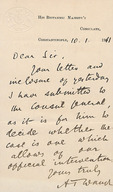 His Britannic Majesty's
Consulate,
Constantinople, 10.1.1941
Dear Sir,
Your letter and
inclosure of yesterday
I have submitted to
the Consul General,
as it is for him to
decide whether the
case is one which
allows of our
official intervention
Yours truly
A T Waugh